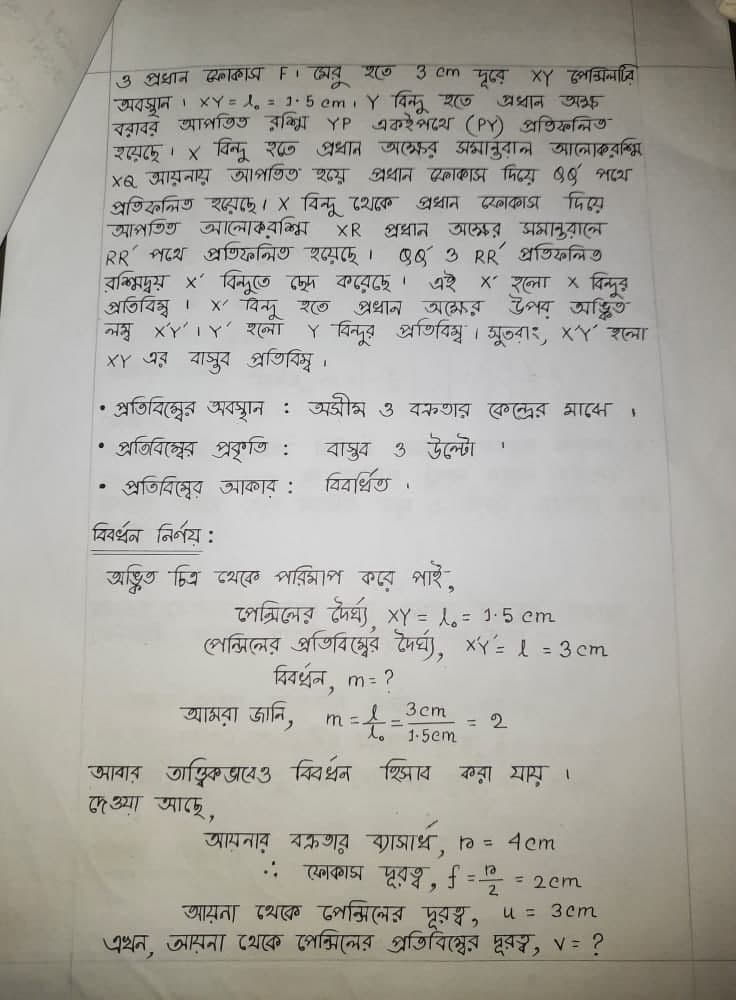 ও প্রধান ফোকাস F। মেরু হতে 3 cm দূরে XY পেন্সিলটির
অবস্থান। XY = l₀ = 1.5 cm। Y বিন্দু হতে প্রধান অক্ষ
বরাবর আপতিত রশ্মি YP একইপথে (PY) প্রতিফলিত
হয়েছে। X বিন্দু হতে প্রধান অক্ষের সমান্তরাল আলোকরশ্মি
XQ আয়নায় আপতিত হয়ে প্রধান ফোকাস দিয়ে QQ′ পথে
প্রতিফলিত হয়েছে। X বিন্দু থেকে প্রধান ফোকাস দিয়ে
আপতিত আলোকরশ্মি XR প্রধান অক্ষের সমান্তরালে
RR′ পথে প্রতিফলিত হয়েছে। QQ′ ও RR′ প্রতিফলিত
রশ্মিদ্বয় X′ বিন্দুতে ছেদ করেছে। এই X′ হলো X বিন্দুর
প্রতিবিম্ব। X′ বিন্দু হতে প্রধান অক্ষের উপর অঙ্কিত
লম্ব X′Y′। Y′ হলো Y বিন্দুর প্রতিবিম্ব। সুতরাং, X′Y′ হলো
XY এর বাস্তব প্রতিবিম্ব।
• প্রতিবিম্বের অবস্থান : অসীম ও বক্রতার কেন্দ্রের মাঝে।
• প্রতিবিম্বের প্রকৃতি : বাস্তব ও উল্টো।
• প্রতিবিম্বের আকার : বিবর্ধিত।
বিবর্ধন নির্ণয় :
অঙ্কিত চিত্র থেকে পরিমাপ করে পাই,
পেন্সিলের দৈর্ঘ্য, XY = l₀ = 1.5 cm
পেন্সিলের প্রতিবিম্বের দৈর্ঘ্য, X′Y′ = l = 3 cm
বিবর্ধন, m = ?
আমরা জানি, m = l/l₀ = 3cm/1.5cm = 2
আবার তাত্ত্বিকভাবেও বিবর্ধন হিসাব করা যায়।
দেওয়া আছে,
আয়নার বক্রতার ব্যাসার্ধ, r = 4cm
∴ ফোকাস দূরত্ব, f = r/2 = 2cm
আয়না থেকে পেন্সিলের দূরত্ব, u = 3cm
এখন, আয়না থেকে পেন্সিলের প্রতিবিম্বের দূরত্ব, v = ?